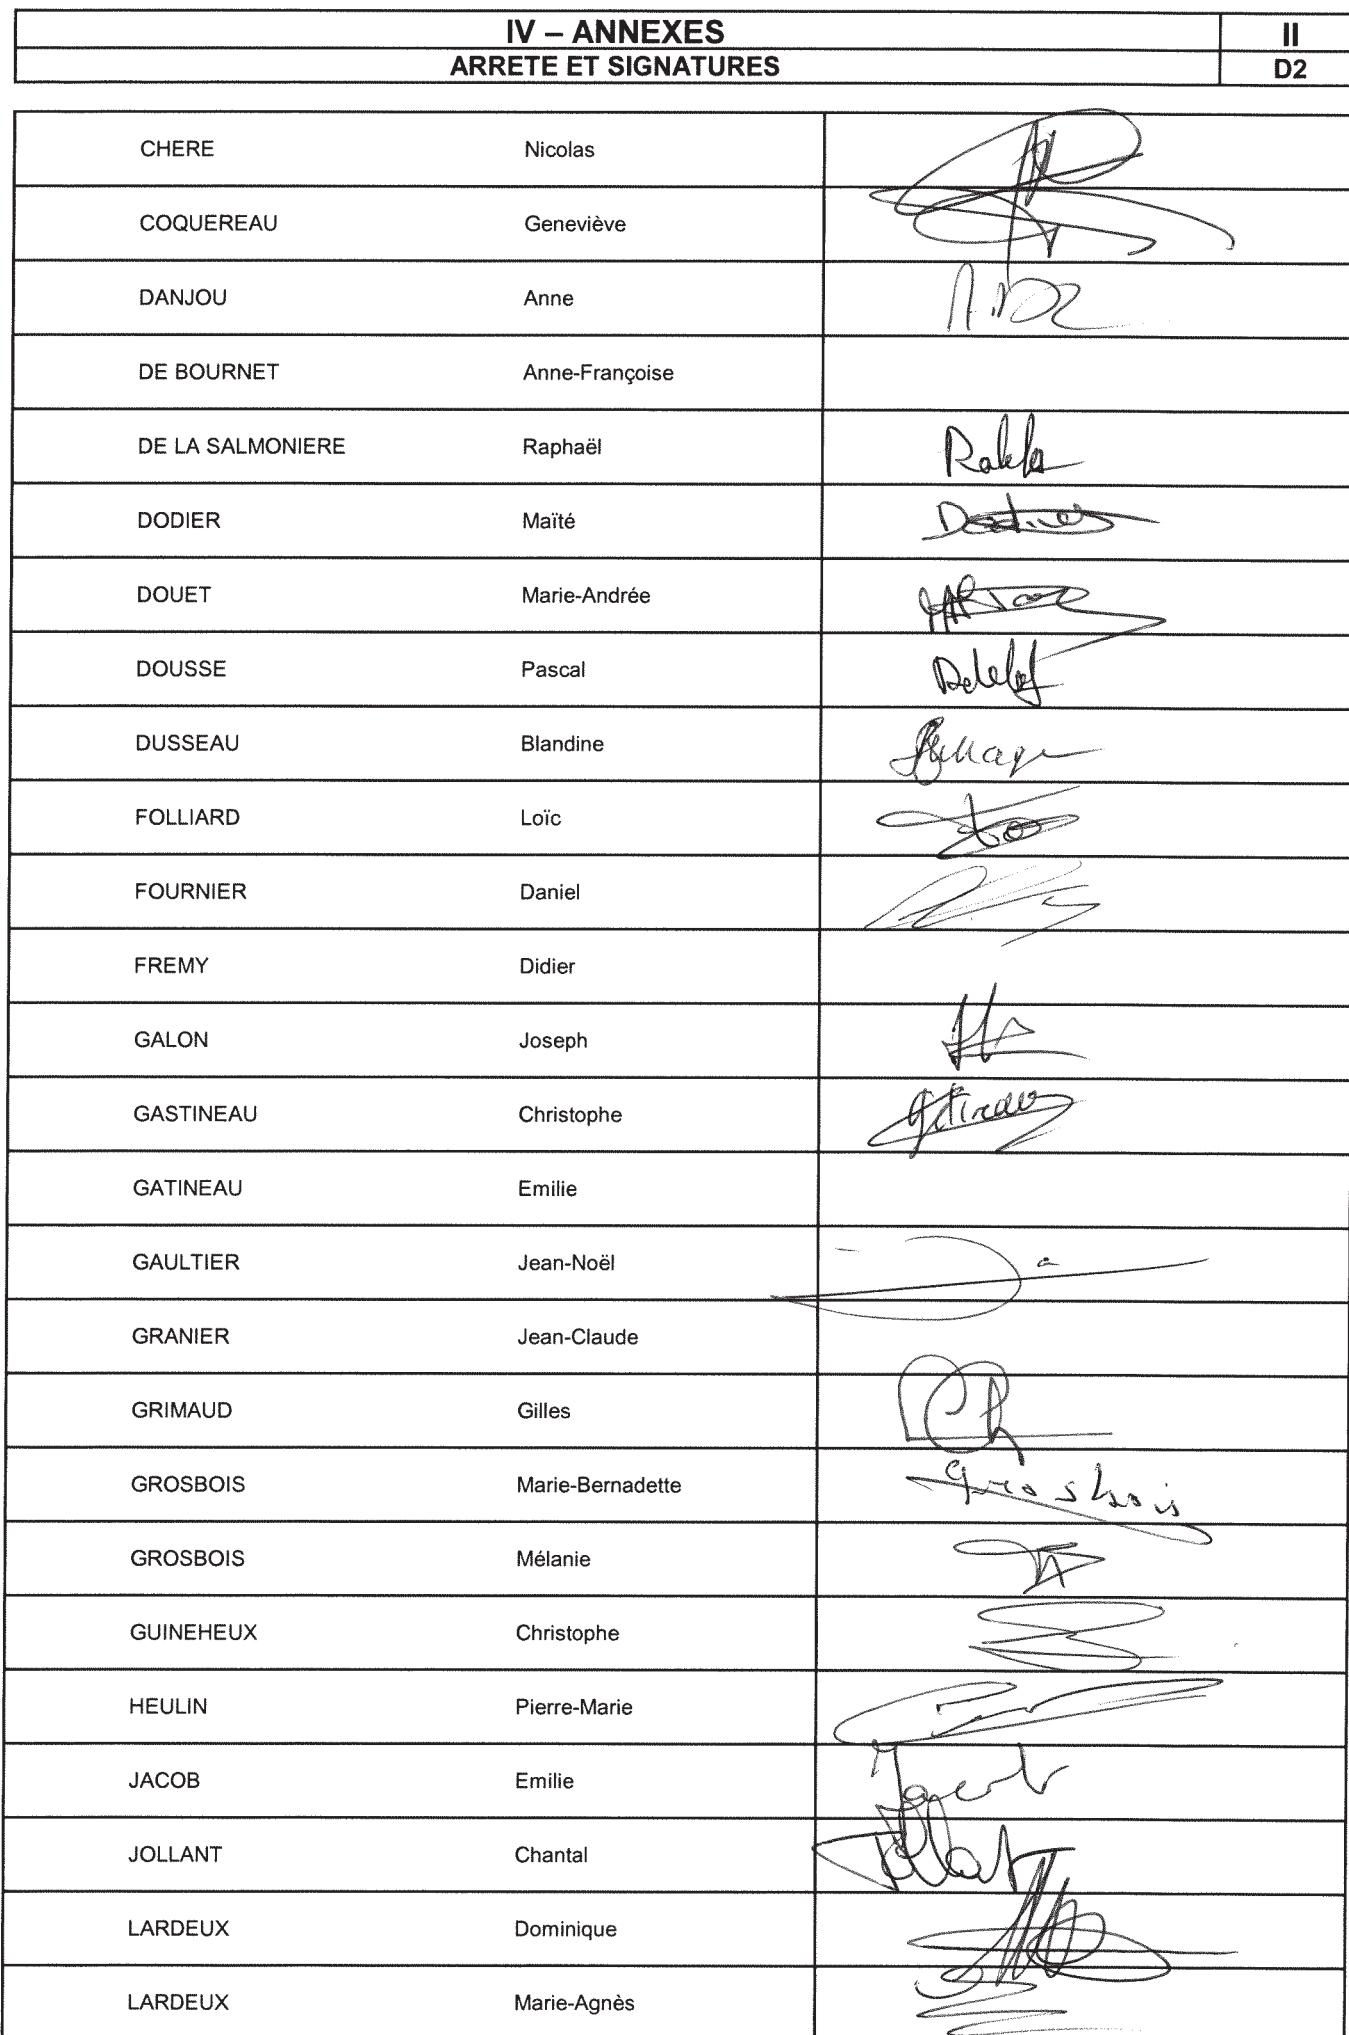 IV – ANNEXES II
ARRETE ET SIGNATURES D2
CHERE Nicolas
COQUEREAU Geneviève
DANJOU Anne
DE BOURNET Anne-Françoise
DE LA SALMONIERE Raphaël
DODIER Maïté
DOUET Marie-Andrée
DOUSSE Pascal
DUSSEAU Blandine
FOLLIARD Loïc
FOURNIER Daniel
FREMY Didier
GALON Joseph
GASTINEAU Christophe
GATINEAU Emilie
GAULTIER Jean-Noël
GRANIER Jean-Claude
GRIMAUD Gilles
GROSBOIS Marie-Bernadette Grosbois
GROSBOIS Mélanie
GUINEHEUX Christophe
HEULIN Pierre-Marie
JACOB Emilie Jacob
JOLLANT Chantal
LARDEUX Dominique
LARDEUX Marie-Agnès